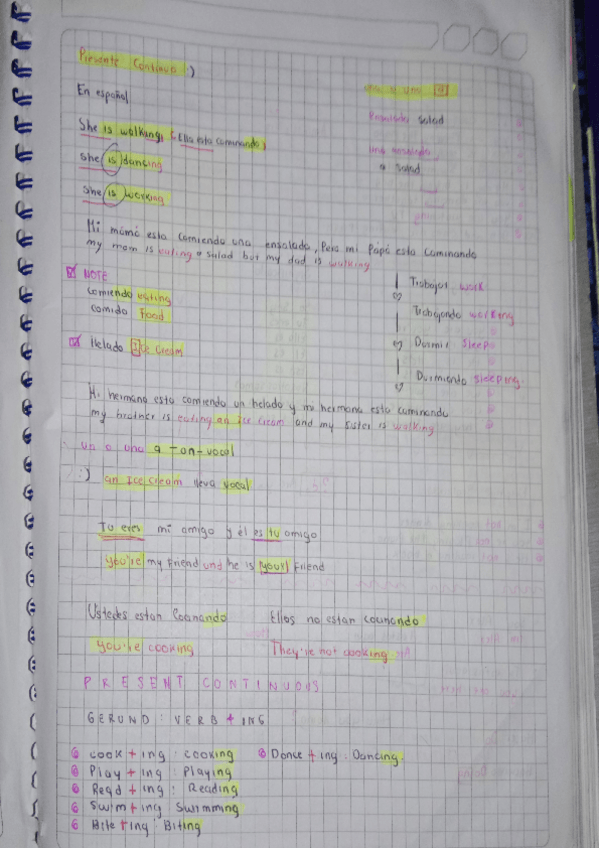 Presente Continuo :)
En español
Ensalada salad
She is walking, (Ella esta caminando)
una ensalada
a salad
She is dancing
She is working
Mi mamá esta comiendo una ensalada, Pero mi Papá esta caminando
my mom is eating a salad but my dad is walking
NOTE
comiendo eating
comida Food
Trabajar work
Trabajando working
Dormir Sleep
Durmiendo Sleeping.
Helado Ice Cream
Mi hermano esta comiendo un helado y mi hermana esta caminando
my brother is eating an Ice Cream and my sister is walking
un o una a - an - vocal
:) an Ice cream lleva vocal
Tu eres mi amigo y él es tu amigo
you're my Friend and he is your Friend
Ustedes estan Cocinando
Ellos no estan cocinando
you're cooking
They're not cooking
PRESENT CONTINUOUS
GERUND : VERB + ING
cook + ing : cooking
Dance + ing : Dancing.
Play + ing : Playing
Read + ing : Reading
Swim + ing Swimming
Bite + ing : Biting